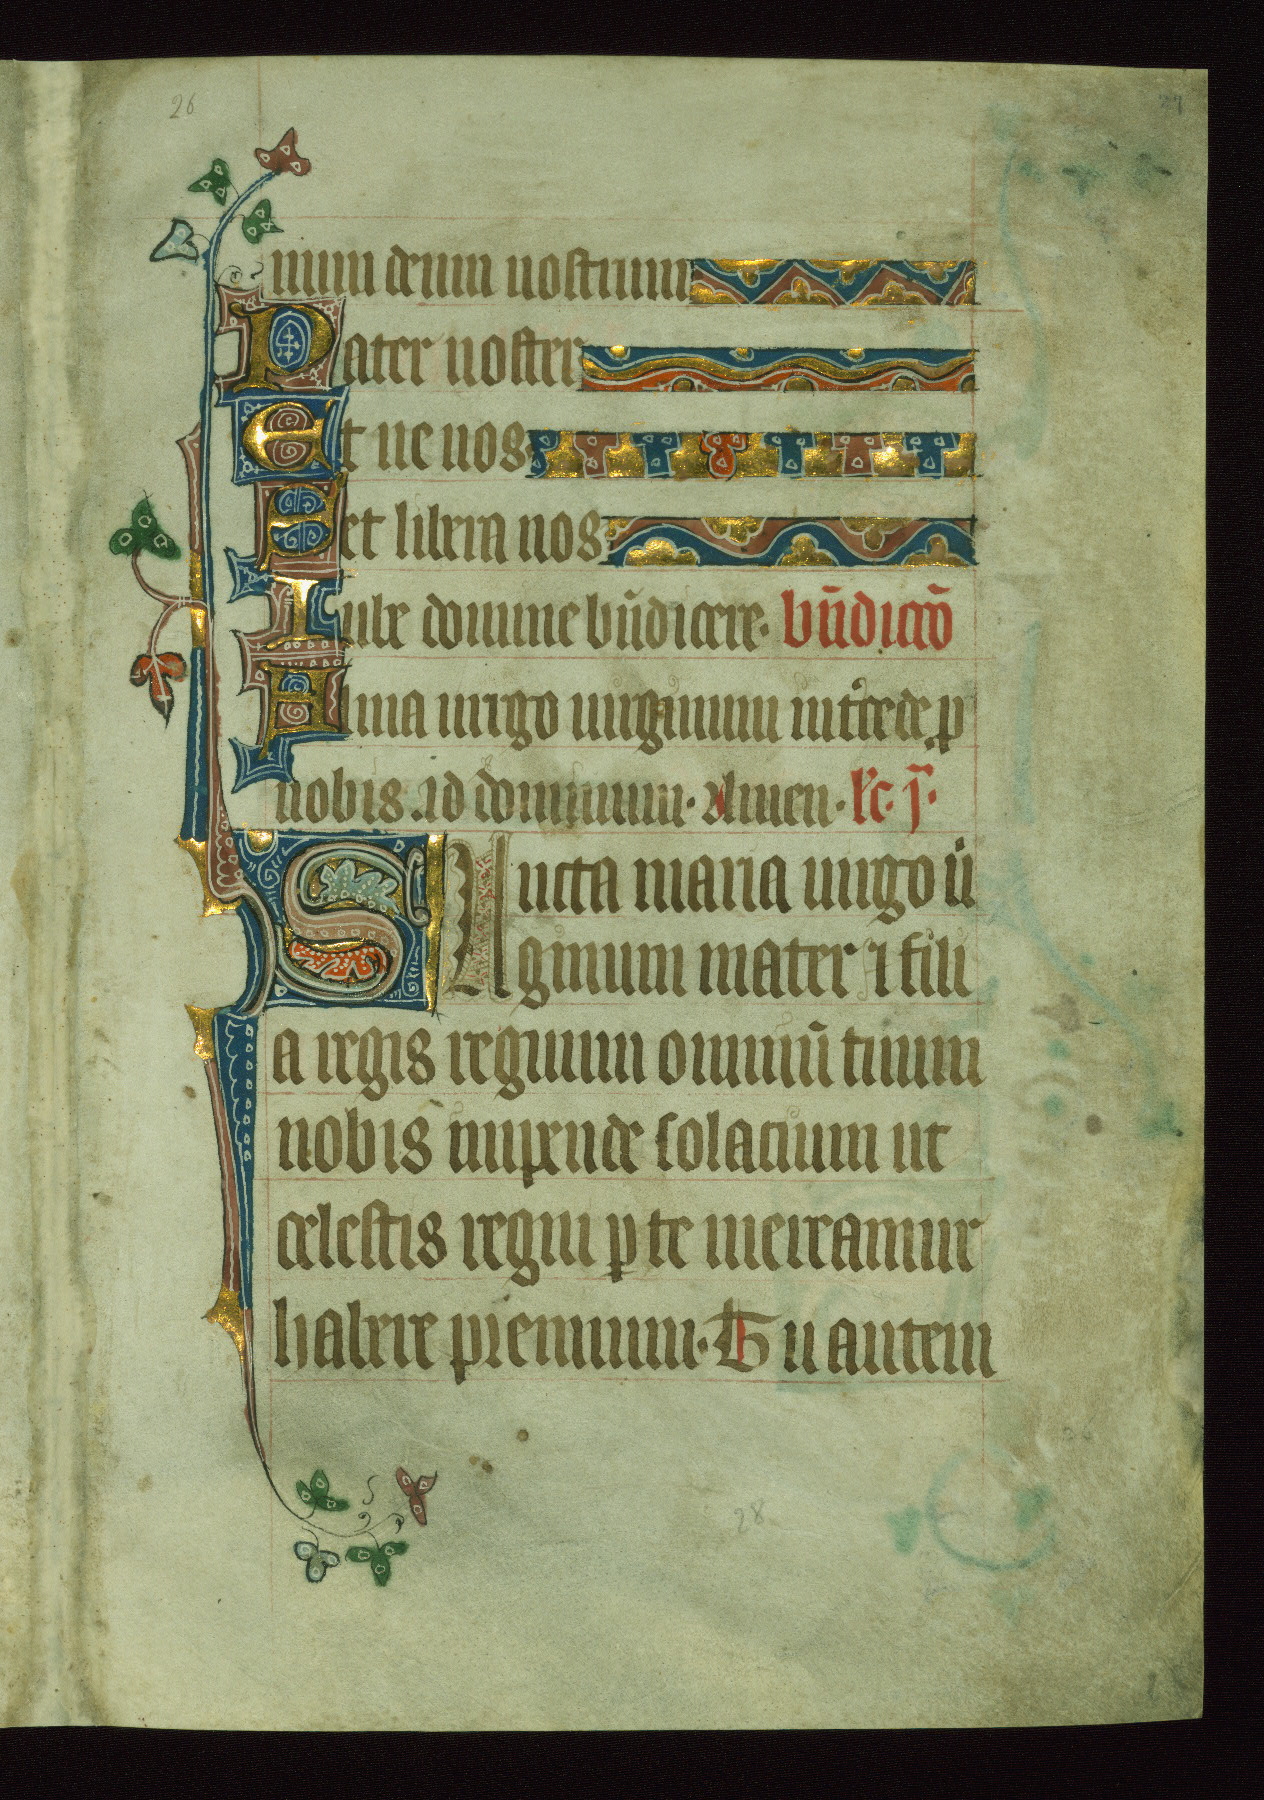 26
27
num deum nostrum
Pater noster
Et ne nos
Set libera nos
Iube domine bn̄dicere. bn̄dictō
Alma uirgo uirginum int̾cede ꝑ
nobis ad dominum. Amen. lc̄. j̄.
SAncta maria uirgo uͥ
ginum mater ⁊ fili
a regis regum omniū tuum
nobis inpende solacium ut
celestis regni ꝑ te mereamur
habere premium. Tu autem
28